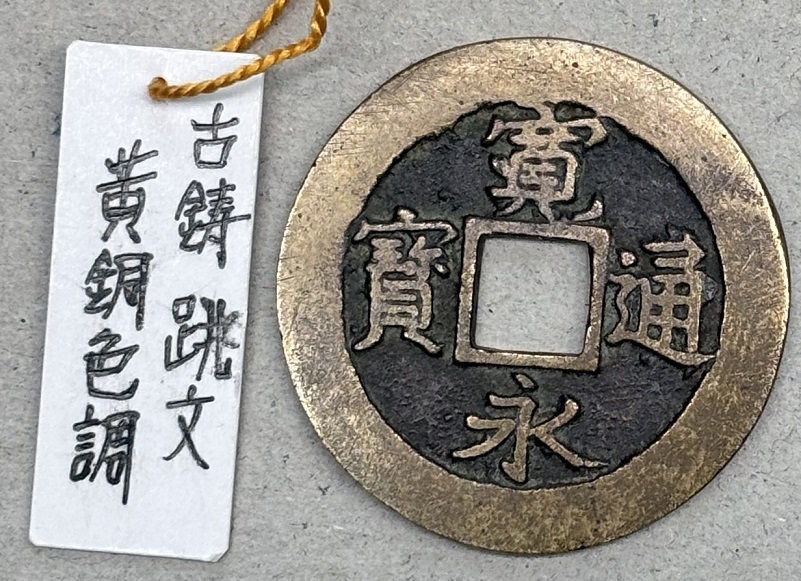 古鋳 跳文
黄銅色調
寛永通寳